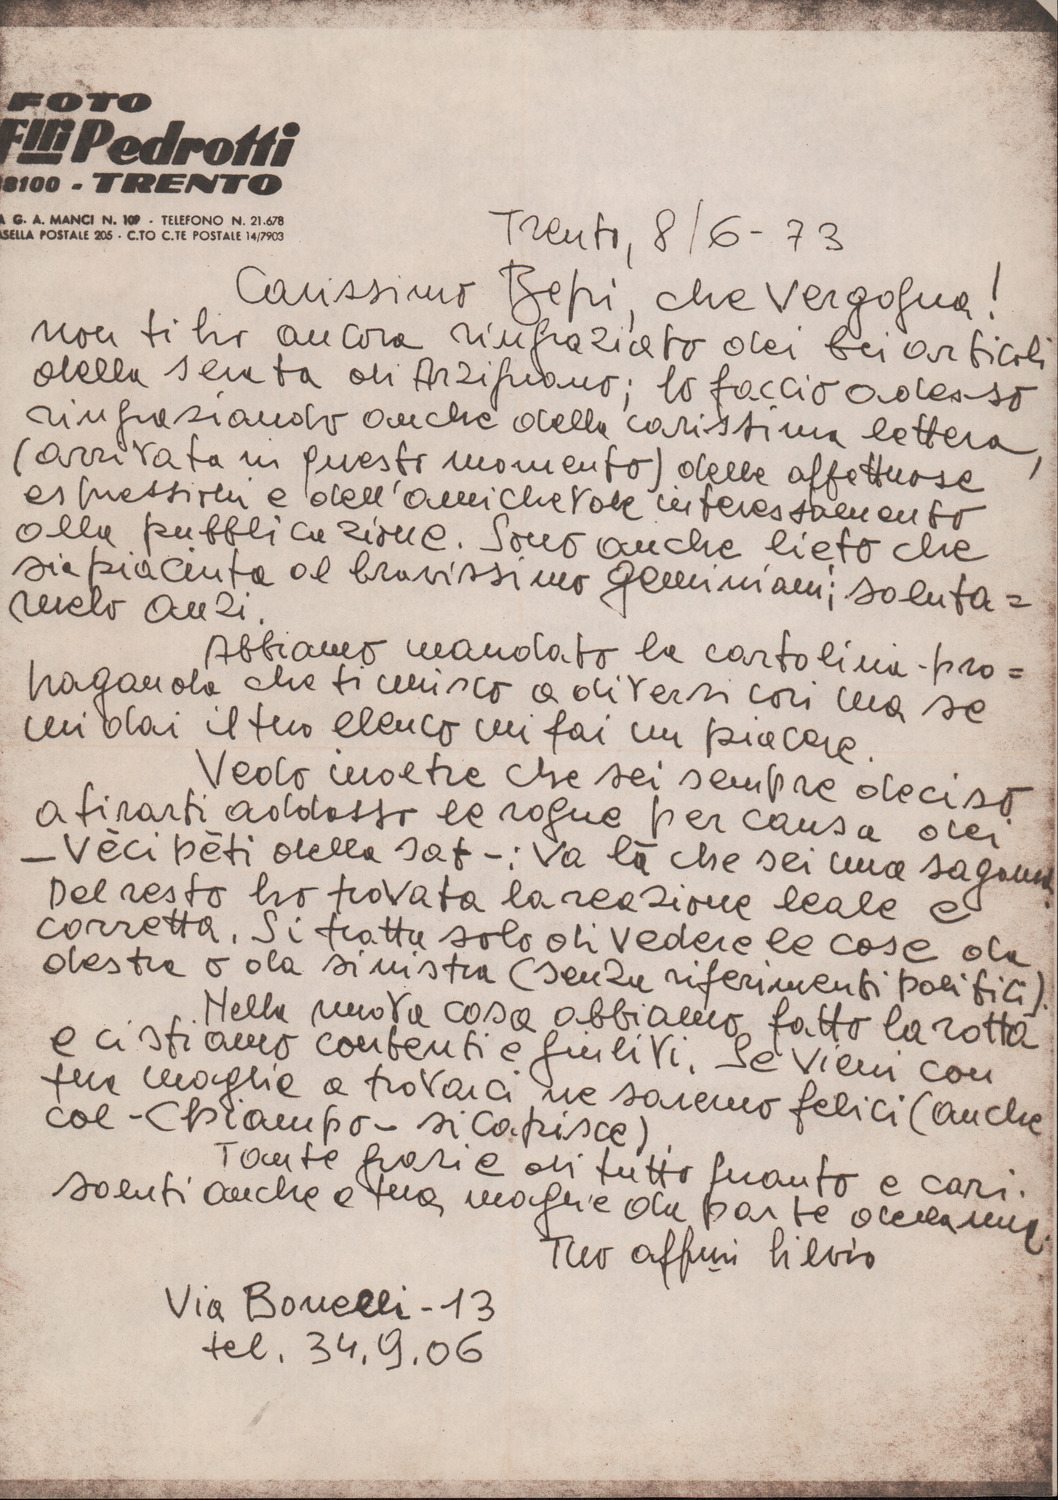 FOTO
Flli Pedrotti
38100 - TRENTO
A G. A. MANCI N. 109 - TELEFONO N. 21.678
ASELLA POSTALE 205 - C.TO C.TE POSTALE 14/7903
Trento, 8/6-73
Carissimo Bepi, che vergogna!
non ti ho ancora ringraziato dei bei articoli
della serata di Arzignano; lo faccio adesso
ringraziando anche della carissima lettera,
(arrivata in questo momento) delle affettuose
espressioni e dell'amichevole interessamento
alla pubblicazione. Sono anche lieto che
sia piaciuta al bravissimo Geminiani; saluta=
melo anzi.
Abbiamo mandato la cartolina-pro=
paganda che ti unisco a diversi cori ma se
mi dai il tuo elenco mi fai un piacere.
Vedo inoltre che sei sempre deciso
a tirarti addosso le rogne per causa dei
- Vèci pèti della sat -: va là che sei una sagoma
Del resto ho trovata la reazione leale e
corretta. Si tratta solo di vedere le cose da
destra o da sinistra (senza riferimenti politici).
Nella nuova casa abbiamo fatto la rotta
e ci stiamo contenti e giulivi. Se vieni con
tua moglie a trovarci ne saremo felici (anche
col - Chiampo - si capisce).
Tante grazie di tutto quanto e cari.
saluti anche a tua moglie da parte della mia.
Tuo affmi Silvio
Via Bonelli - 13
tel. 34.9.06